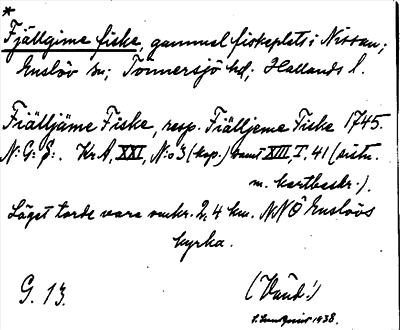 *
Fjällgime fiske, gammal fiskeplats i Nissan;
Enslöv sn; Tönnersjö hd; Hallands l.
Fiälljäme Fiske, resp. Fiälljeme Fiske 1745.
N:G:S:. Kr. A, XXI, N:o 3 (kop.) samt XIII, I. 41 (avskr.
m. kartbeskr.).
Läget torde vara omkr. 2,4 km. NNÖ Enslövs
kyrka.
G. 13.
1938.